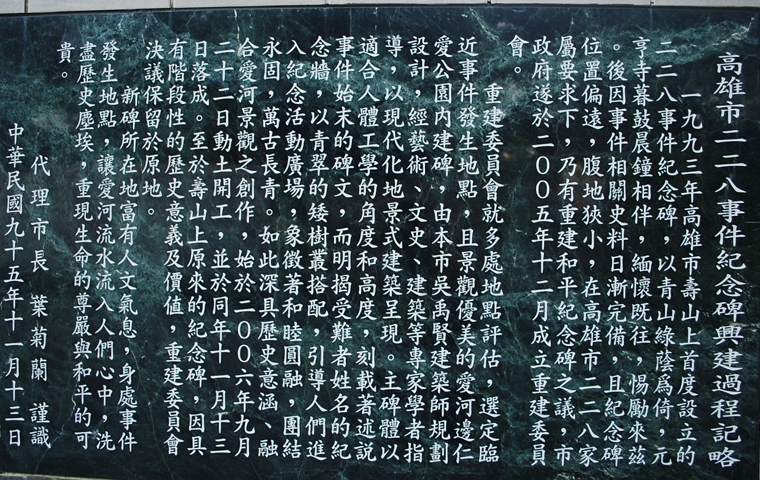 高雄市二二八事件紀念碑興建過程記略
一九九三年高雄市壽山上首度設立的
二二八事件紀念碑，以青山綠蔭爲倚，元
亨寺暮鼓晨鐘相伴，緬懷既往，惕勵來茲
。後因事件相關史料日漸完備，且紀念碑
位置偏遠，腹地狹小，在高雄市二二八家
屬要求下，乃有重建和平紀念碑之議，市
政府遂於二００五年十二月成立重建委員
會。
重建委員會就多處地點評估，選定臨
近事件發生地點，且景觀優美的愛河邊仁
愛公園內建碑，由本市吳禹賢建築師規劃
設計，經藝術、文史、建築等專家學者指
導，以現代化地景式建築呈現。主碑體以
適合人體工學的角度和高度，刻載著述說
事件始末的碑文，而明揭受難者姓名的紀
念牆，以青翠的矮樹叢搭配，引導人們進
入紀念活動廣場，象徵著和睦圓融，團結
永固，萬古長青。如此深具歷史意涵、融
合愛河景觀之創作，始於二００六年九月
二十二日動土開工，並於同年十一月十三
日落成。至於壽山上原來的紀念碑，因具
有階段性的歷史意義及價值，重建委員會
決議保留於原地。
新碑所在地富有人文氣息，身處事件
發生地點，讓愛河流水流入人們心中，洗
盡歷史塵埃，重現生命的尊嚴與和平的可
貴。
代理市長 葉菊蘭 謹識
中華民國九十五年十一月十三日